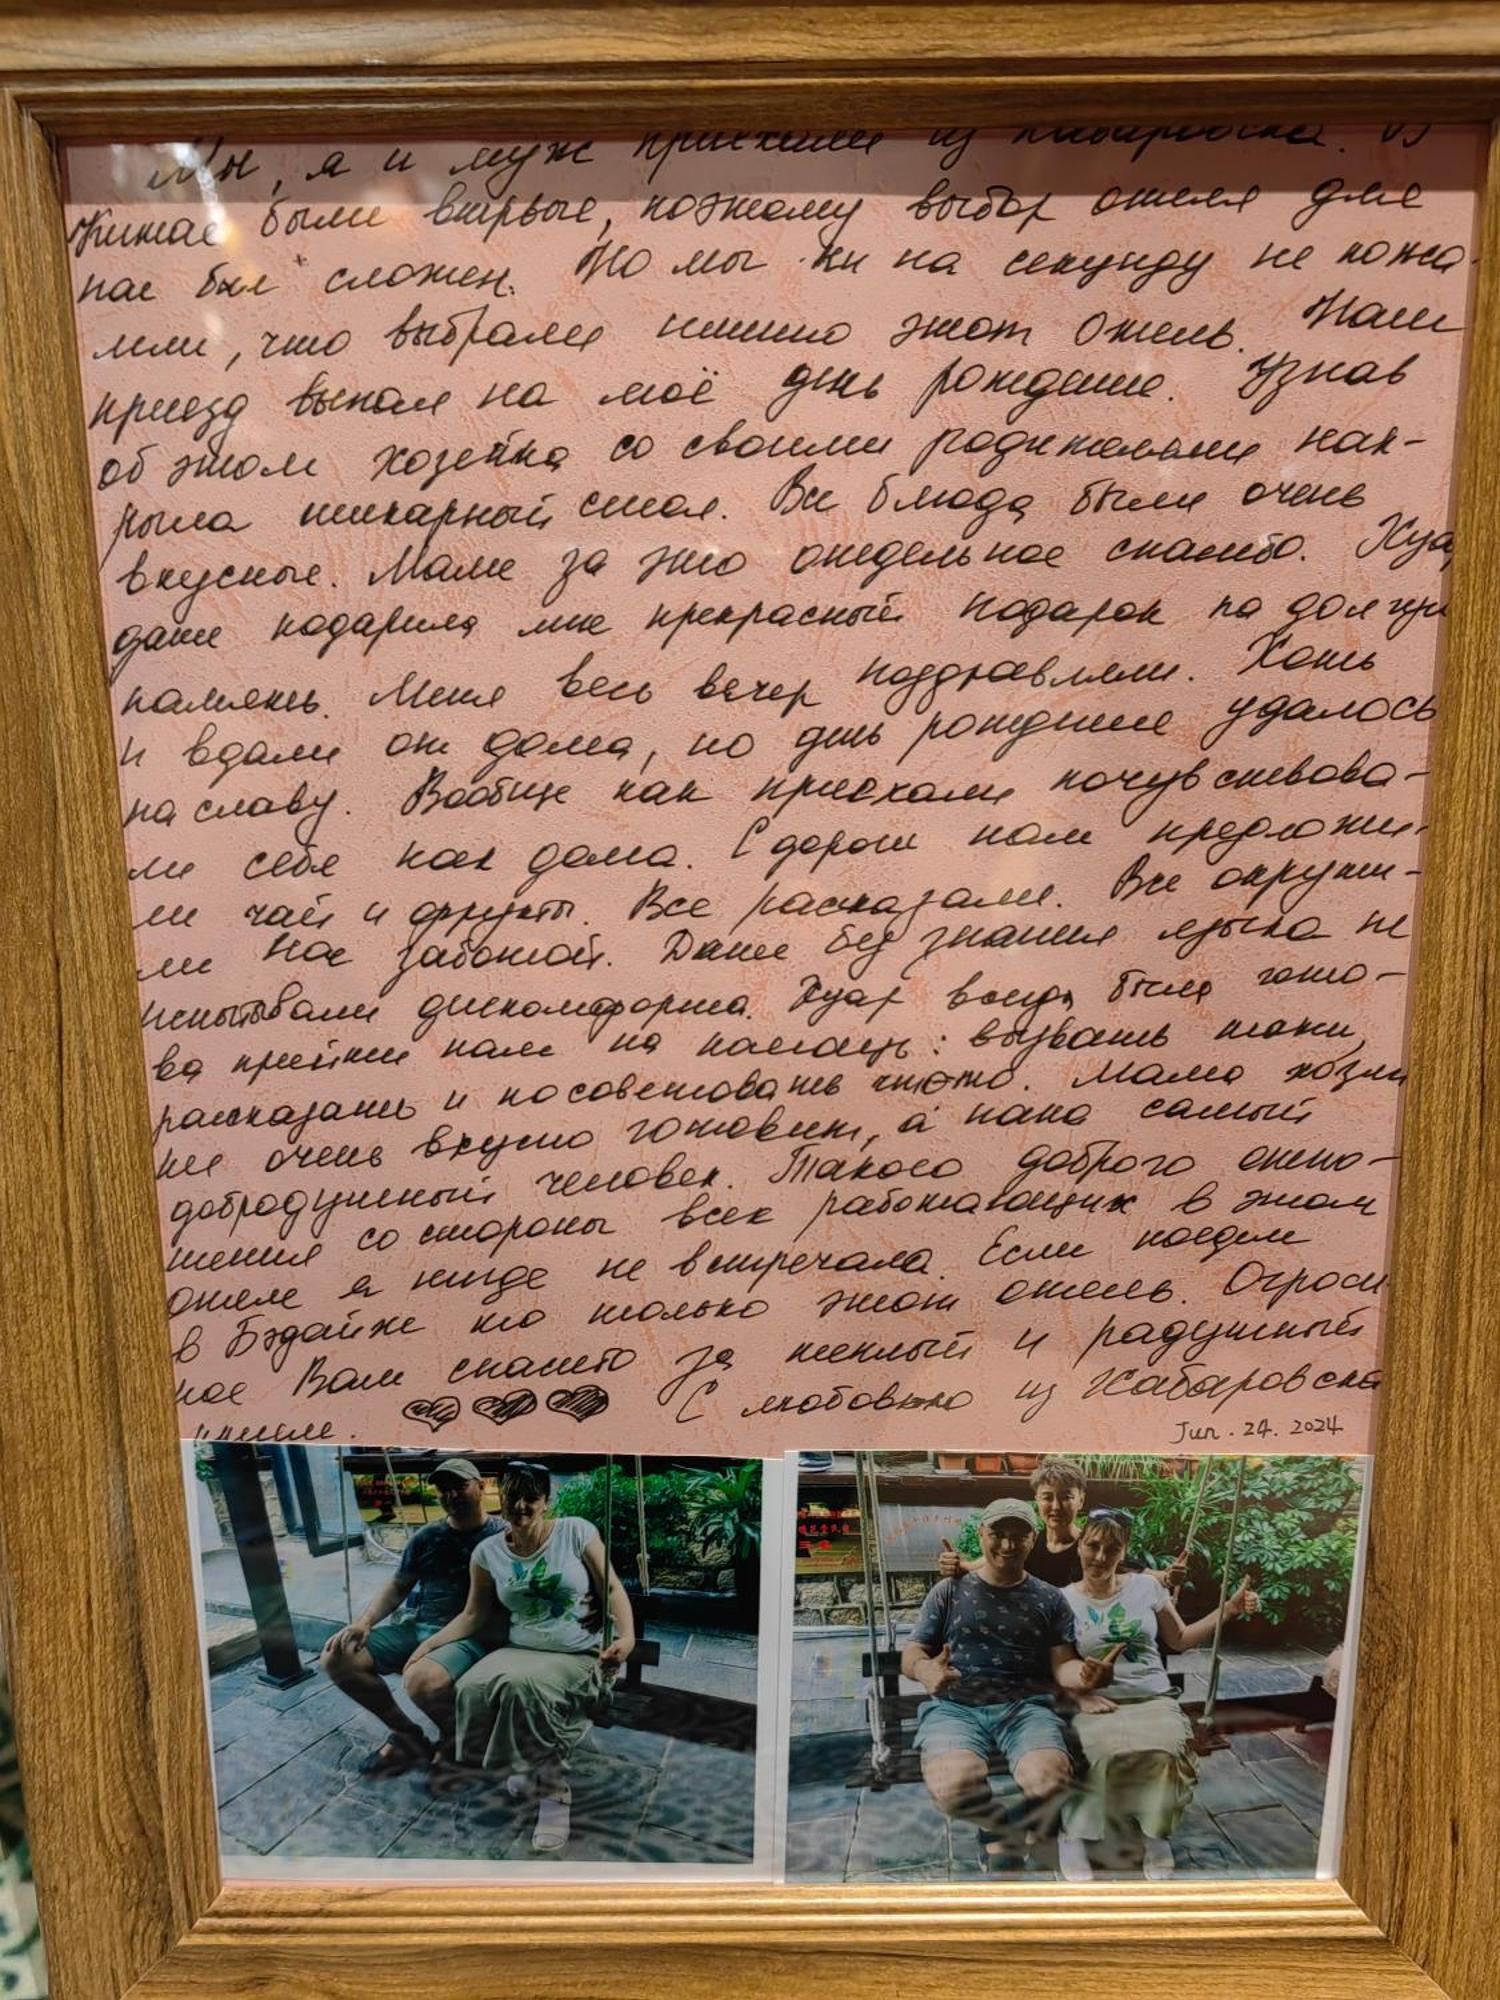 Мы, я и муж приехали из Хабаровска. В
Китае были впервые, поэтому выбор отеля для
нас был сложен. Но мы ни на секунду не пожа-
лели, что выбрали именно этот Отель. Наш
приезд выпал на моё день рождение. Узнав
об этом хозейка со своими родителями нак-
рыла шикарный стол. Все блюда были очень
вкусные. Маме за это отдельное спасибо. Хуа,
даже подарила мне прекрасный подарок на долгую
память. Меня весь вечер поздравляли. Хоть
и вдали от дома, но день рождение удалось
на славу. Вообще как приехали почувствова-
ли себя как дома. С дороги нам предложи-
ли чай и фрукты. Все рассказали. Все окружи-
ли нас заботой. Даже без знания языка не
испытывали дискомфорта. Хуар всегда была гото-
ва прийти нам на помощь: вызвать такси,
рассказать и посоветовать что-то. Мама хозяй
ке очень вкусно готовит, а папа самый
добродушный человек. Такого доброго отно-
шения со стороны всех работающих в этом
отеле я нигде не встречала. Если поедем
в Бэдайхе то только этот отель. Огром
ное Вам спасибо за теплый и радушный
прием. С любовью из Хабаровска
Jun. 24. 2024